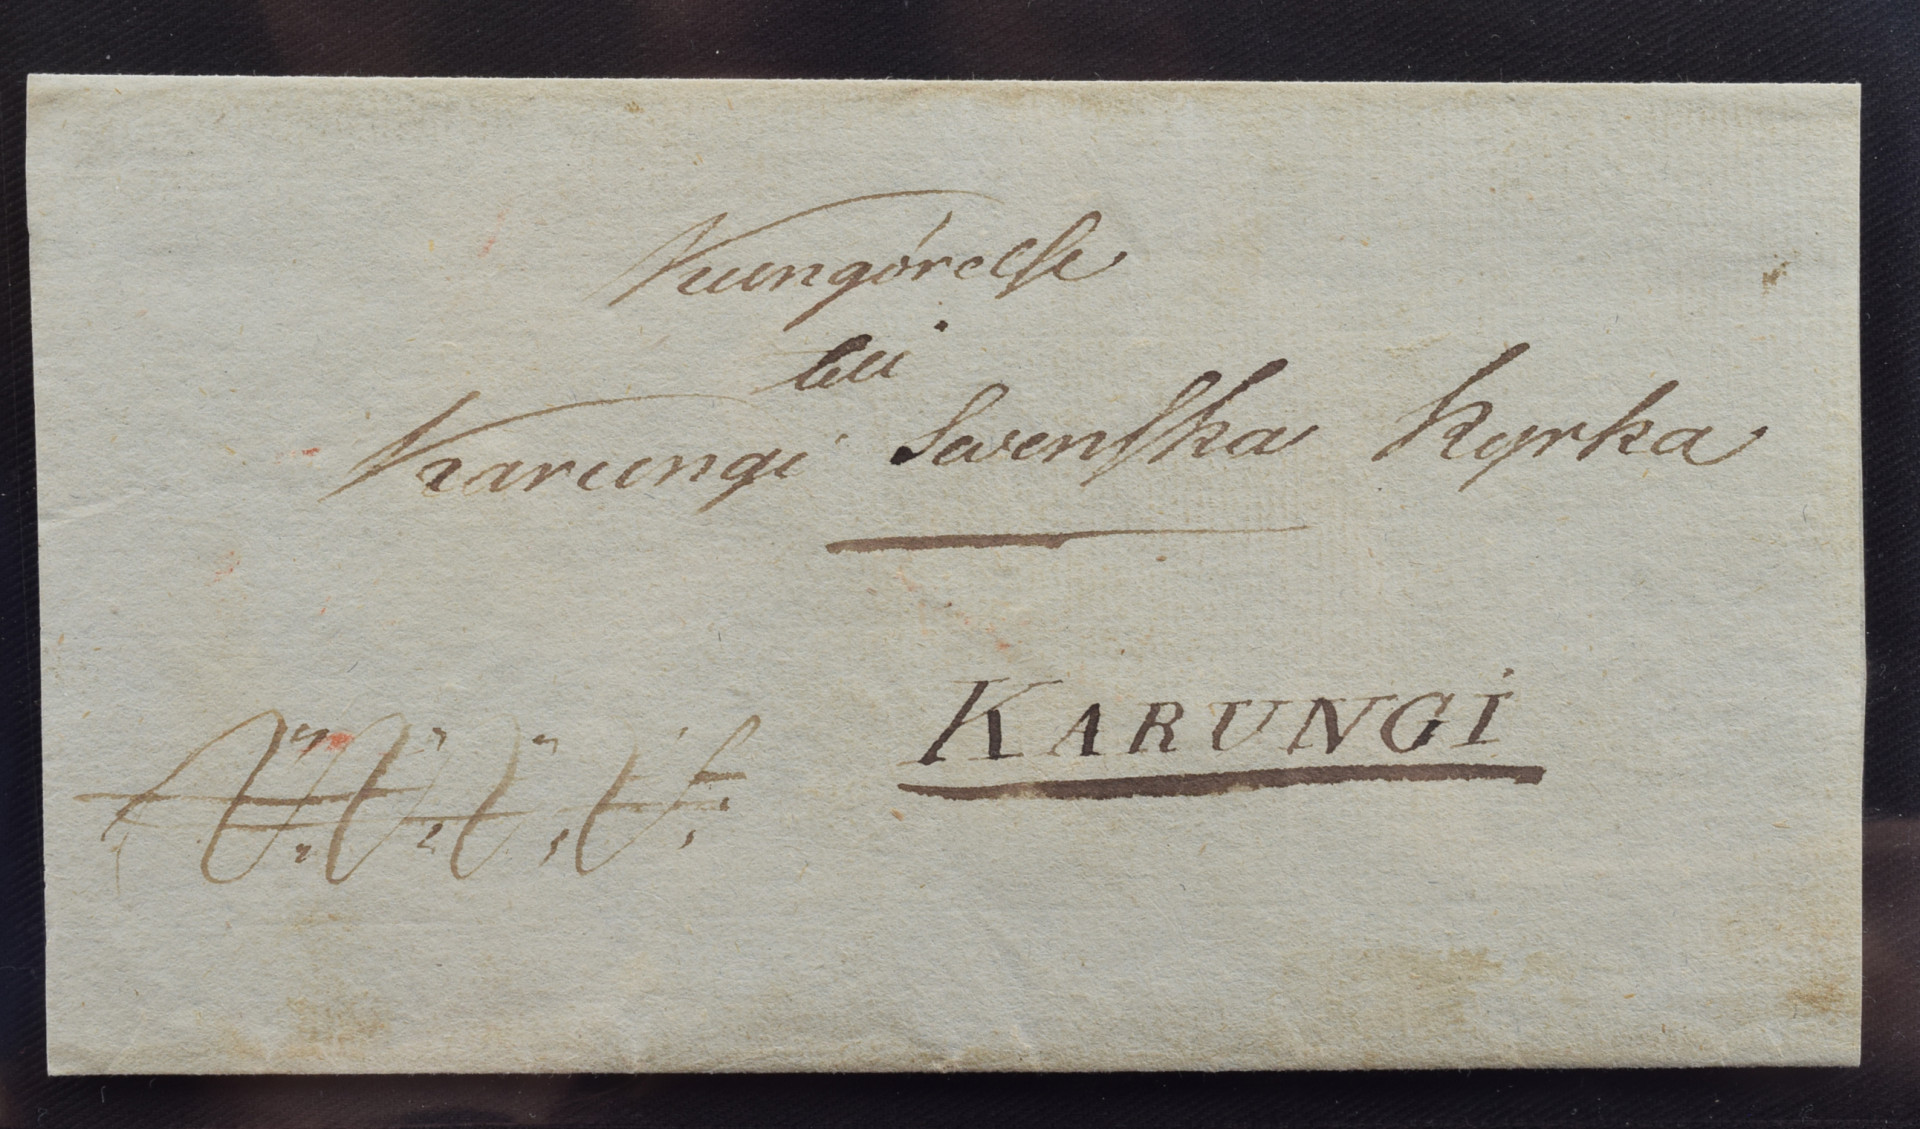 Kungörelse
till
Karungi Swenska Kyrka
KARUNGI